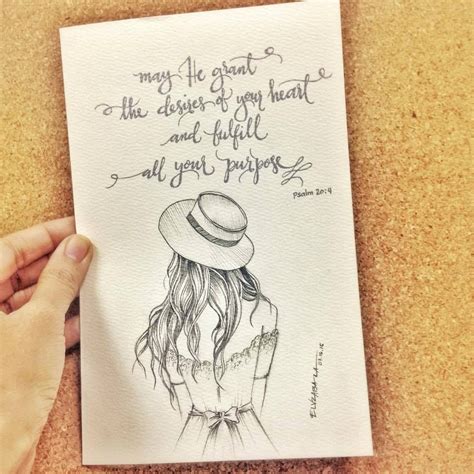 may He grant
the desires of your heart
and fulfill
all your purpose
Psalm 20:4